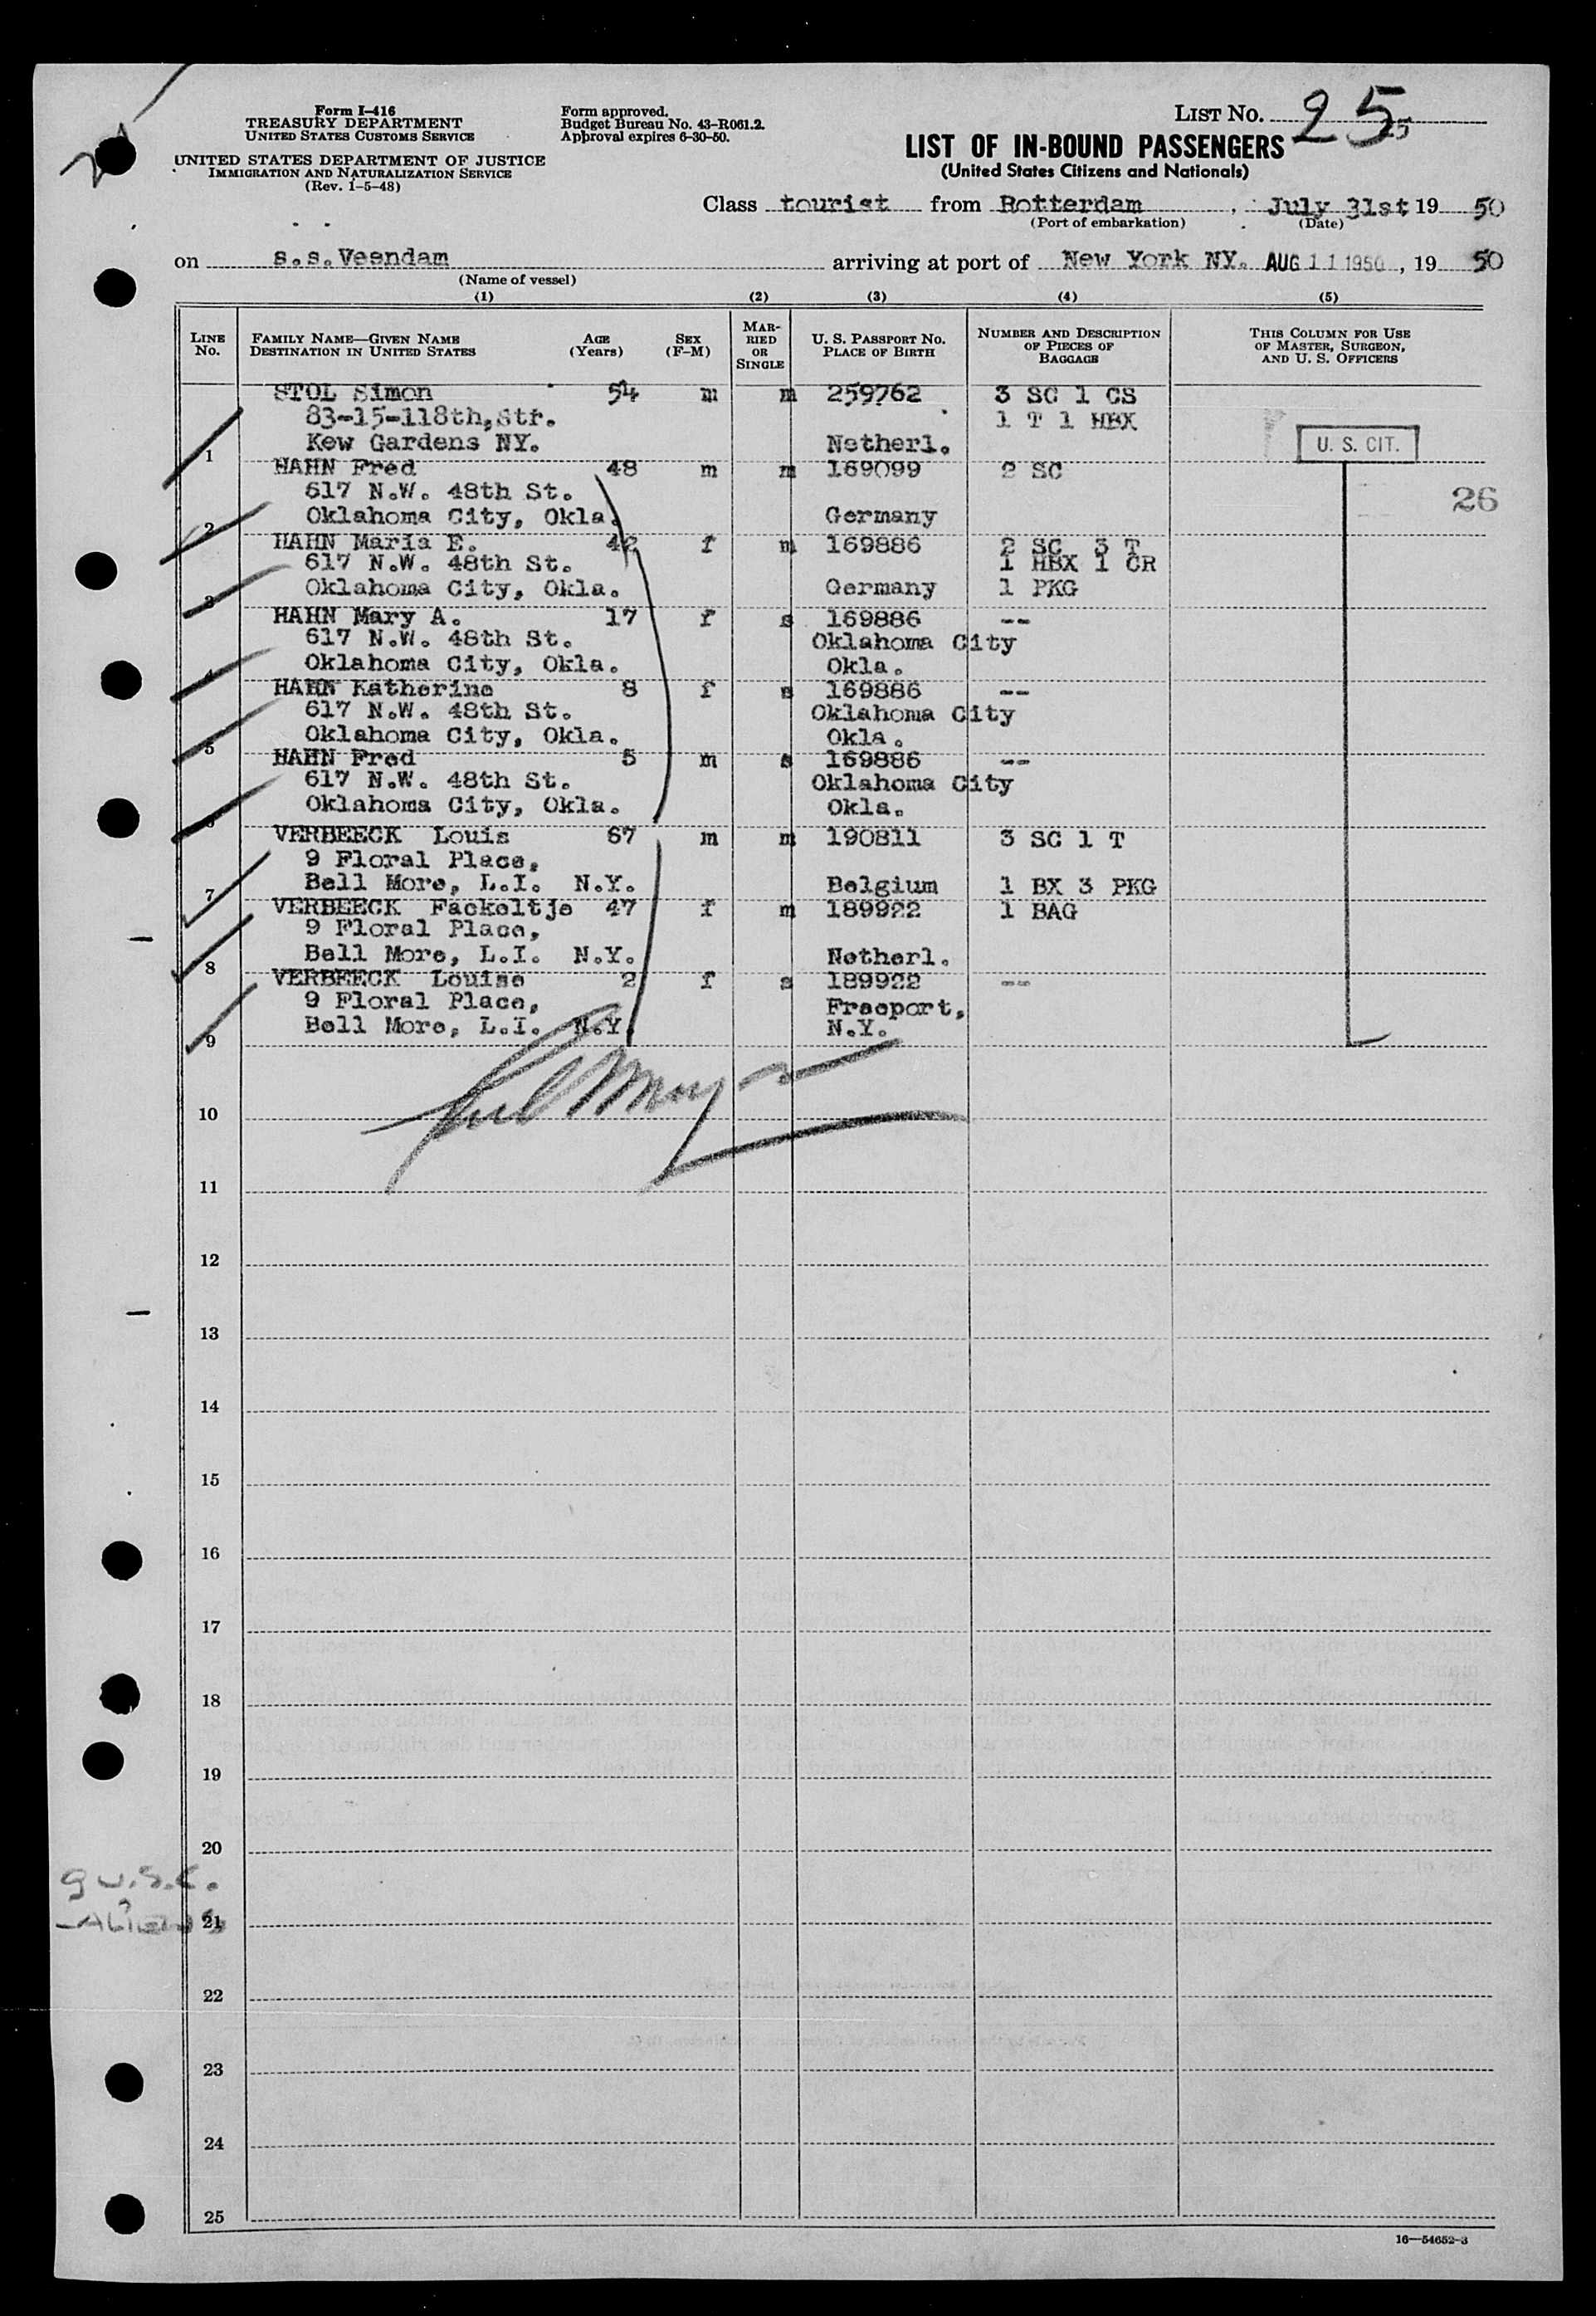 Form I-416
TREASURY DEPARTMENT
UNITED STATES CUSTOMS SERVICE
UNITED STATES DEPARTMENT OF JUSTICE
IMMIGRATION AND NATURALIZATION SERVICE
(Rev. 1-5-48)
Form approved.
Budget Bureau No. 43-R061.2.
Approval expires 6-30-50.
LIST NO. 25
LIST OF IN-BOUND PASSENGERS
(United States Citizens and Nationals)
Class tourist from Rotterdam, July 31st 19 50
(Port of embarkation) (Date)
on s.s.Veendam arriving at port of New York NY. AUG 11 1950, 19 50
(Name of vessel)
(1) (2) (3) (4) (5)
LINE NO.
FAMILY NAME—GIVEN NAME
DESTINATION IN UNITED STATES
AGE (Years)
SEX (F-M)
MARRIED OR SINGLE
U. S. PASSPORT NO.
PLACE OF BIRTH
NUMBER AND DESCRIPTION OF PIECES OF BAGGAGE
THIS COLUMN FOR USE OF MASTER, SURGEON, AND U. S. OFFICERS
STOL Simon 54 m m 259762 3 SC 1 CS
83-15-118th,Str. 1 T 1 HBX
1 Kew Gardens NY. Netherl. U. S. CIT.
HAHN Fred 48 m m 169099 2 SC
617 N.W. 48th St. 26
2 Oklahoma City, Okla. Germany
HAHN Maria E. 42 f m 169886 2 SC 3 T
617 N.W. 48th St. 1 HBX 1 CR
3 Oklahoma City, Okla. Germany 1 PKG
HAHN Mary A. 17 f s 169886 --
617 N.W. 48th St. Oklahoma City
4 Oklahoma City, Okla. Okla.
HAHN Katherine 8 f s 169886 --
617 N.W. 48th St. Oklahoma City
5 Oklahoma City, Okla. Okla.
HAHN Fred 5 m s 169886 --
617 N.W. 48th St. Oklahoma City
6 Oklahoma City, Okla. Okla.
VERBEECK Louis 67 m m 190811 3 SC 1 T
9 Floral Place,
7 Bell More, L.I. N.Y. Belgium 1 BX 3 PKG
VERBEECK Fackeltje 47 f m 189922 1 BAG
9 Floral Place,
8 Bell More, L.I. N.Y. Netherl.
VERBEECK Louise 2 f s 189922 --
9 Floral Place, Freeport,
9 Bell More, L.I. N.Y. N.Y.
10
11
12
13
14
15
16
17
18
19
20
9 U.S.C.
-ALIENS 21
22
23
24
25
16—54652-3